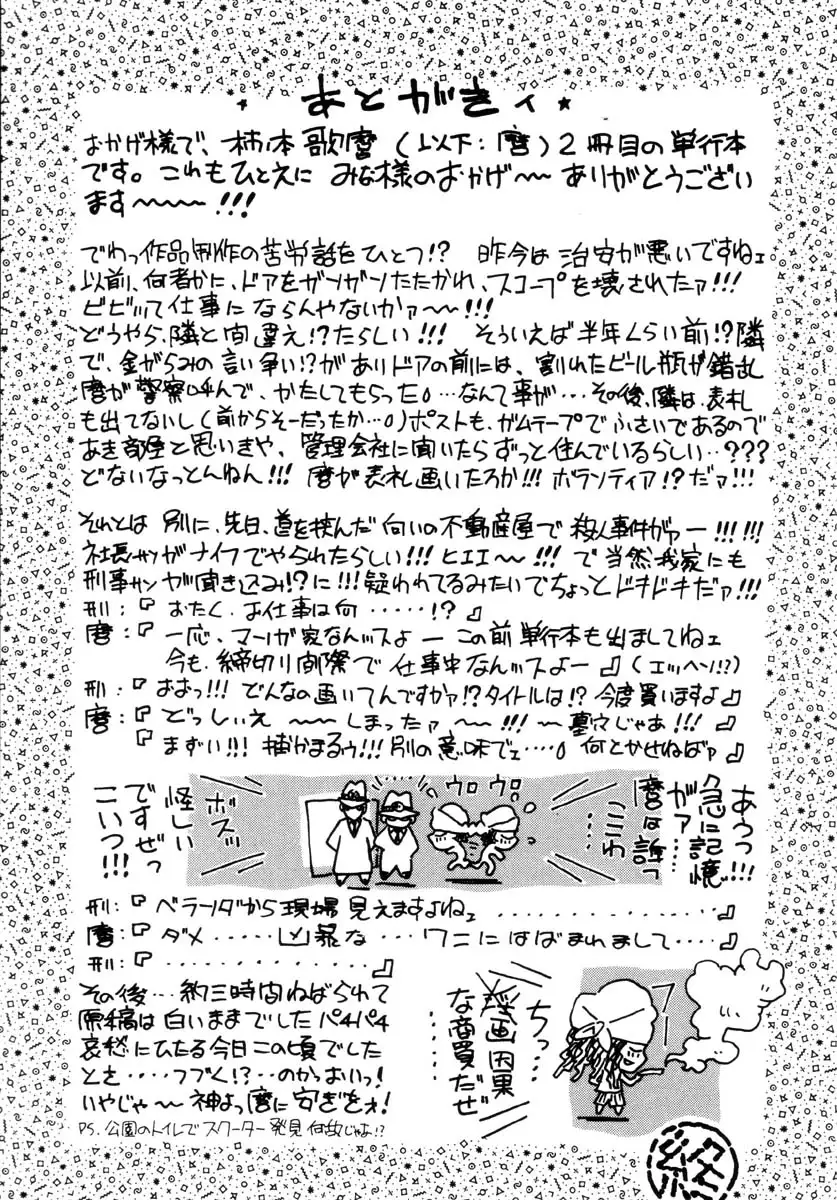 あとがきィ
おかげ様で、柿ノ本歌麿(以下:麿)2冊目の単行本
です。これもひとえに みな様のおかげ〜〜ありがとうござい
ます〜〜〜!!!
でわっ作品制作の苦労話をひとつ!? 昨今は治安が悪いですねェ
以前、何者かに、ドアをガンガンたたかれ、スコープを壊されたァ!!!
ビビッて仕事にならんやないかァ〜〜!!!
どうやら、隣と間違え!?たらしい!!! そういえば半年くらい前!?隣
で、金がらみの言い争い!?がありドアの前には、割れたビール瓶が錯乱
麿が警察呼んで、かたしてもらった。…なんて事が…その後、隣は、表札
も出てないし(前からそーだったか…。)ポストも、ガムテープでふさいであるので
あき部屋と思いきや、管理会社に聞いたらずっと住んでいるらしい…???
どないなっとんねん!!! 麿が表札画いたろか!!!ボランティア!?だァ!!!
それとは別に、先日、道を挟んだ向いの不動産屋で殺人事件がァー!!!!!!
社長サンがナイフでやられたらしい!!!ヒエエ〜!!!で当然我家にも
刑事サンが聞き込み!?に!!!疑われてるみたいでちょっとドキドキだァ!!!
刑:『おたく、お仕事は何……!?』
麿:『一応、マンガ家なんッスよーこの前単行本も出ましてねェ
今も、締切り間際で仕事中なんッスよー』(エッヘン!?)
刑:『おおっ!!!どんなの画いてんですかァ!?タイトルは!?今度買いますよ』
麿:『どっしぃえ〜〜しまったァ〜〜!!!〜墓穴じゃあ!!!』
『まずい!!!捕かまるゥ!!!別の意味でェ…。何とかせねばァ』
あうっ!!!
急に記憶
がァ……
麿は誰っ
ここわ
……
ウロウロ
ボスッ
怪しい
ですぜっ
こいつ!!!
刑:『ベランダから現場見えますよねェ…………』
麿:『ダメ……凶暴な…ワニにはばまれまして……』
刑:『…………』
その後…約三時間ねばられて
原稿は白いままでしたパチパチ
哀愁にひたる今日この頃でした
とさ……つづく!?…のかっおいっ!
いやじゃ〜神よっ麿に安ぎをぉ!
PS.公園のトイレでスクーター発見何故じゃぁ!?
フー
ちっ…
画因果
な商買だぜ
……